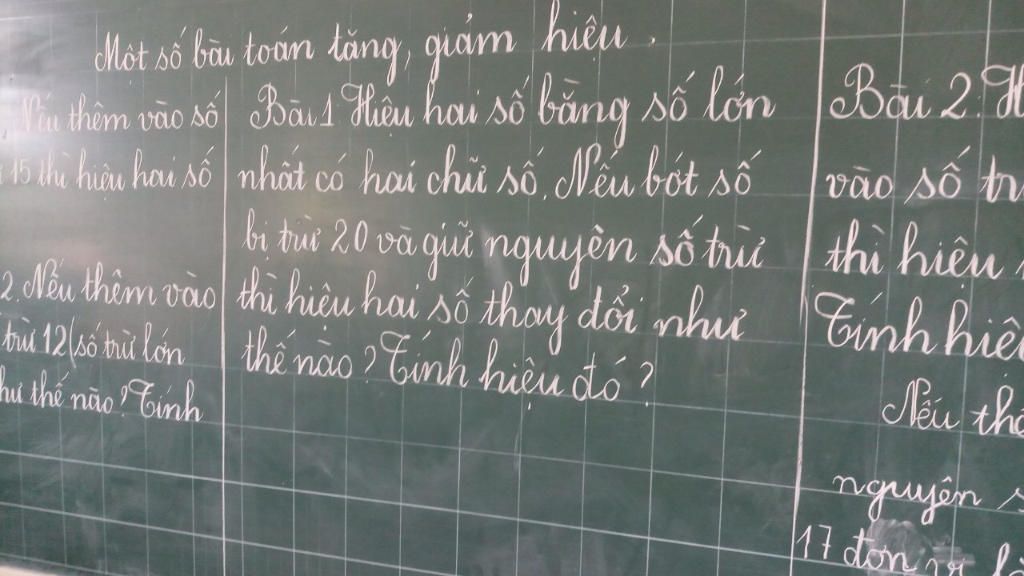 Một số bài toán tăng, giảm hiệu.
Nếu thêm vào số
15 thì hiệu hai số
2. Nếu thêm vào
trừ 12 (số trừ lớn
như thế nào? Tính
Bài 1 Hiệu hai số bằng số lớn
nhất có hai chữ số. Nếu bớt số
bị trừ 20 và giữ nguyên số trừ
thì hiệu hai số thay đổi như
thế nào? Tính hiệu đó?
Bài 2. H
vào số tr
thì hiệu
Tính hiệu
Nếu th
nguyên s
17 đơn vị